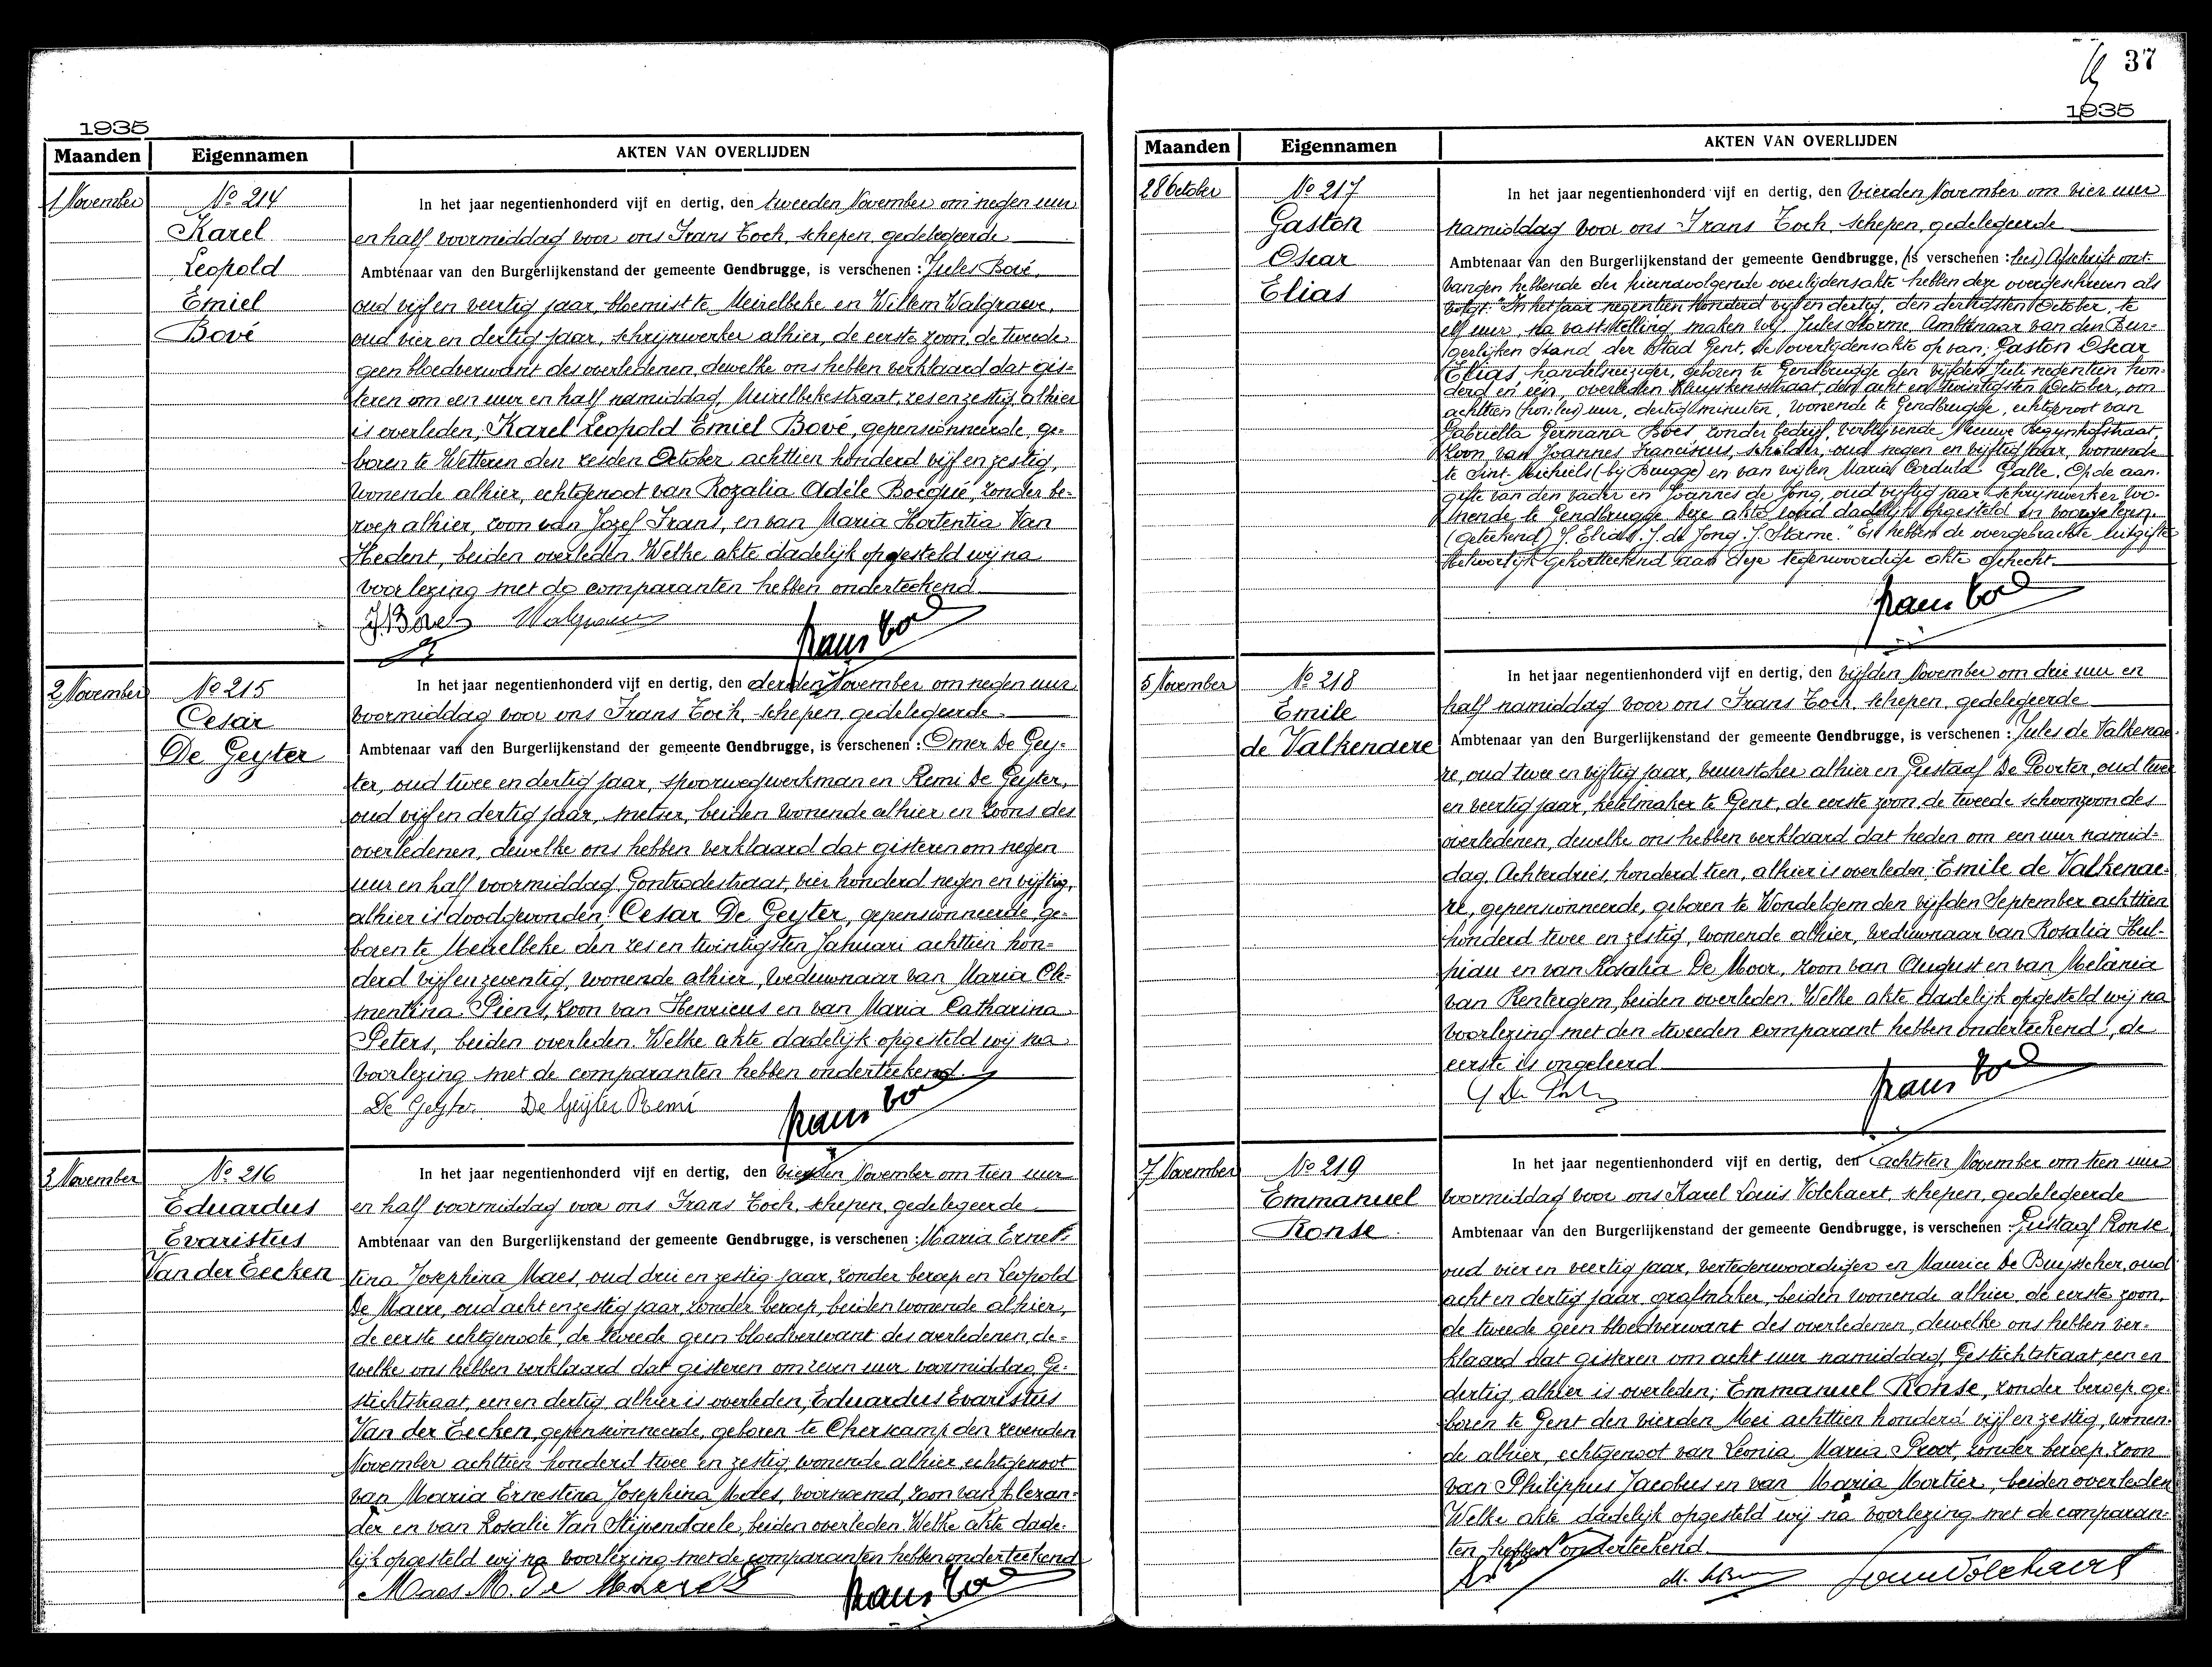 1935
Maanden Eigennamen AKTEN VAN OVERLIJDEN
1 November
No 214
Karel
Leopold
Emiel
Bové
In het jaar negentienhonderd vijf en dertig, den tweeden November om negen uur
en half voormiddag voor ons Frans Toch, schepen, gedelegeerde
Ambtenaar van den Burgerlijkenstand der gemeente Gendbrugge, is verschenen : Jules Bové,
oud vijf en veertig jaar, bloemist te Meirelbeke en Willem Walgraeve,
oud vier en dertig jaar, schrijnwerker alhier, de eerste zoon, de tweede
geen bloedverwant des overledenen, dewelke ons hebben verklaard dat gis=
teren om een uur en half namiddag, Meirelbekestraat, zes en zestig, alhier
is overleden; Karel Leopold Emiel Bové, gepensionneerde, ge=
boren te Wetteren den zesden October achttien honderd vijf en zestig,
wonende alhier, echtgenoot van Rozalia Adèle Bocqué, zonder be=
roep alhier, zoon van Jozef Frans, en van Maria Hortentia Van
Hedent, beiden overleden. Welke akte dadelijk opgesteld wij na
voorlezing met de comparanten hebben onderteekend.
J. Bové Walgraeve Frans Toch
2 November
No 215
Cesar
De Geyter
In het jaar negentienhonderd vijf en dertig, den derden November om negen uur
voormiddag voor ons Frans Toch, schepen, gedelegeerde
Ambtenaar van den Burgerlijkenstand der gemeente Gendbrugge, is verschenen : Omer De Gey=
ter, oud twee en dertig jaar, spoorwegwerkman en Remi De Geyter,
oud vijf en dertig jaar, metser, beiden wonende alhier en zoons des
overledenen, dewelke ons hebben verklaard dat gisteren om negen
uur en half voormiddag, Gontrodestraat, vier honderd negen en vijftig,
alhier is doodgevonden; Cesar De Geyter, gepensionneerde, ge=
boren te Meirelbeke den zes en twintigsten Januari achttien hon=
derd vijf en zeventig, wonende alhier, weduwnaar van Maria Cle=
mentina Piens, zoon van Henricus en van Maria Catharina
Peters, beiden overleden. Welke akte dadelijk opgesteld wij na
voorlezing met de comparanten hebben onderteekend.
De Geyter De Geyter Remi Frans Toch
3 November
No 216
Eduardus
Evaristus
Van der Eecken
In het jaar negentienhonderd vijf en dertig, den vierden November om tien uur
en half voormiddag voor ons Frans Toch, schepen, gedelegeerde
Ambtenaar van den Burgerlijkenstand der gemeente Gendbrugge, is verschenen : Maria Ernes=
tina Josephina Maes, oud drie en zestig jaar, zonder beroep en Leopold
De Maere, oud acht en zestig jaar, zonder beroep, beiden wonende alhier,
de eerste echtgenoote, de tweede geen bloedverwant des overledenen, de=
welke ons hebben verklaard dat gisteren om zeven uur voormiddag, Ge=
stichtstraat, een en dertig, alhier is overleden; Eduardus Evaristus
Van der Eecken, gepensionneerde, geboren te Cherscamp den zevenden
November achttien honderd twee en zestig, wonende alhier, echtgenoot
van Maria Ernestina Josephina Maes, voornoemd, zoon van Alexan=
der en van Rosalie Van Stijvendaele, beiden overleden. Welke akte dade=
lijk opgesteld wij na voorlezing met de comparanten hebben onderteekend
Maes M. De Maere L Frans Toch
37
1935
Maanden Eigennamen AKTEN VAN OVERLIJDEN
28 October
No 217
Gaston
Oscar
Elias
In het jaar negentienhonderd vijf en dertig, den vierden November om vier uur
namiddag voor ons Frans Toch, schepen, gedelegeerde
Ambtenaar van den Burgerlijkenstand der gemeente Gendbrugge, (is verschenen : lees) Afschrift ont=
vangen hebbende der hiernavolgende overlijdensakte hebben deze overgeschreven als
volgt: "In het jaar negentien honderd vijf en dertig, den dertigsten October, te
elf uur, na vaststelling maken wij, Jules Storme, Ambtenaar van den Bur=
gerlijken Stand der Stad Gent, de overlijdensakte op van; Gaston Oscar
Elias, handelsreiziger, geboren te Gendbrugge den vijfden Juli negentien hon=
derd en één, overleden Kluyskensstraat, den acht en twintigsten October, om
achttien uur, dertig minuten, wonende te Gendbrugge, echtgenoot van
Gabriella Germana Boes, zonder bedrijf, verblijvende Nieuwe Begijnhofstraat,
zoon van Joannes Franciscus, schilder, oud negen en vijftig jaar, wonende
te Sint Michiels (bij Brugge) en van wijlen Maria Cordula Galle. Op de aan=
gifte van den vader en Joannes de Jong, oud vijftig jaar, schrijnwerker wo=
nende te Gendbrugge. Deze akte werd dadelijk opgesteld en voorgelezen.
(Geteekend) J. Elias. J. de Jong. J. Storme." En hebben de overgebrachte uitgifte
behoorlijk gekortteekend aan deze tegenwoordige akte gehecht.
Frans Toch
5 November
No 218
Emile
de Valkenaere
In het jaar negentienhonderd vijf en dertig, den vijfden November om drie uur en
half namiddag voor ons Frans Toch, schepen, gedelegeerde
Ambtenaar van den Burgerlijkenstand der gemeente Gendbrugge, is verschenen : Jules de Valkenae=
re, oud twee en vijftig jaar, vuurstoker alhier en Gustaaf De Porter, oud twee
en veertig jaar, ketelmaker te Gent, de eerste zoon, de tweede schoonzoon des
overledenen, dewelke ons hebben verklaard dat heden om een uur namid=
dag, Achterdries, honderd tien, alhier is overleden: Emile de Valkenae=
re, gepensionneerde, geboren te Wondelgem den vijfden September achttien
honderd twee en zestig, wonende alhier, weduwnaar van Rosalia Hul=
piau en van Rosalia De Moor, zoon van August en van Melania
van Rentergem, beiden overleden. Welke akte dadelijk opgesteld wij na
voorlezing met den tweeden comparant hebben onderteekend, de
eerste is ongeleerd
Frans Toch
7 November
No 219
Emmanuel
Ronse
In het jaar negentienhonderd vijf en dertig, den achtsten November om tien uur
voormiddag voor ons Karel Louis Volckaert, schepen, gedelegeerde
Ambtenaar van den Burgerlijkenstand der gemeente Gendbrugge, is verschenen : Gustaaf Ronse
oud vier en veertig jaar, vertegenwoordiger en Maurice De Buysscher, oud
acht en dertig jaar, grafmaker, beiden wonende alhier, de eerste zoon,
de tweede geen bloedverwant des overledenen, dewelke ons hebben ver=
klaard dat gisteren om acht uur namiddag, Gestichtstraat, een en
dertig, alhier is overleden; Emmanuel Ronse, zonder beroep, ge=
boren te Gent den vierden Mei achttien honderd vijf en zestig, wonen=
de alhier, echtgenoot van Leonia Maria Proot, zonder beroep, zoon
van Philippus Jacobus en van Maria Mortier, beiden overleden
Welke akte dadelijk opgesteld wij na voorlezing met de comparan=
ten hebben onderteekend.
Louis Volckaert